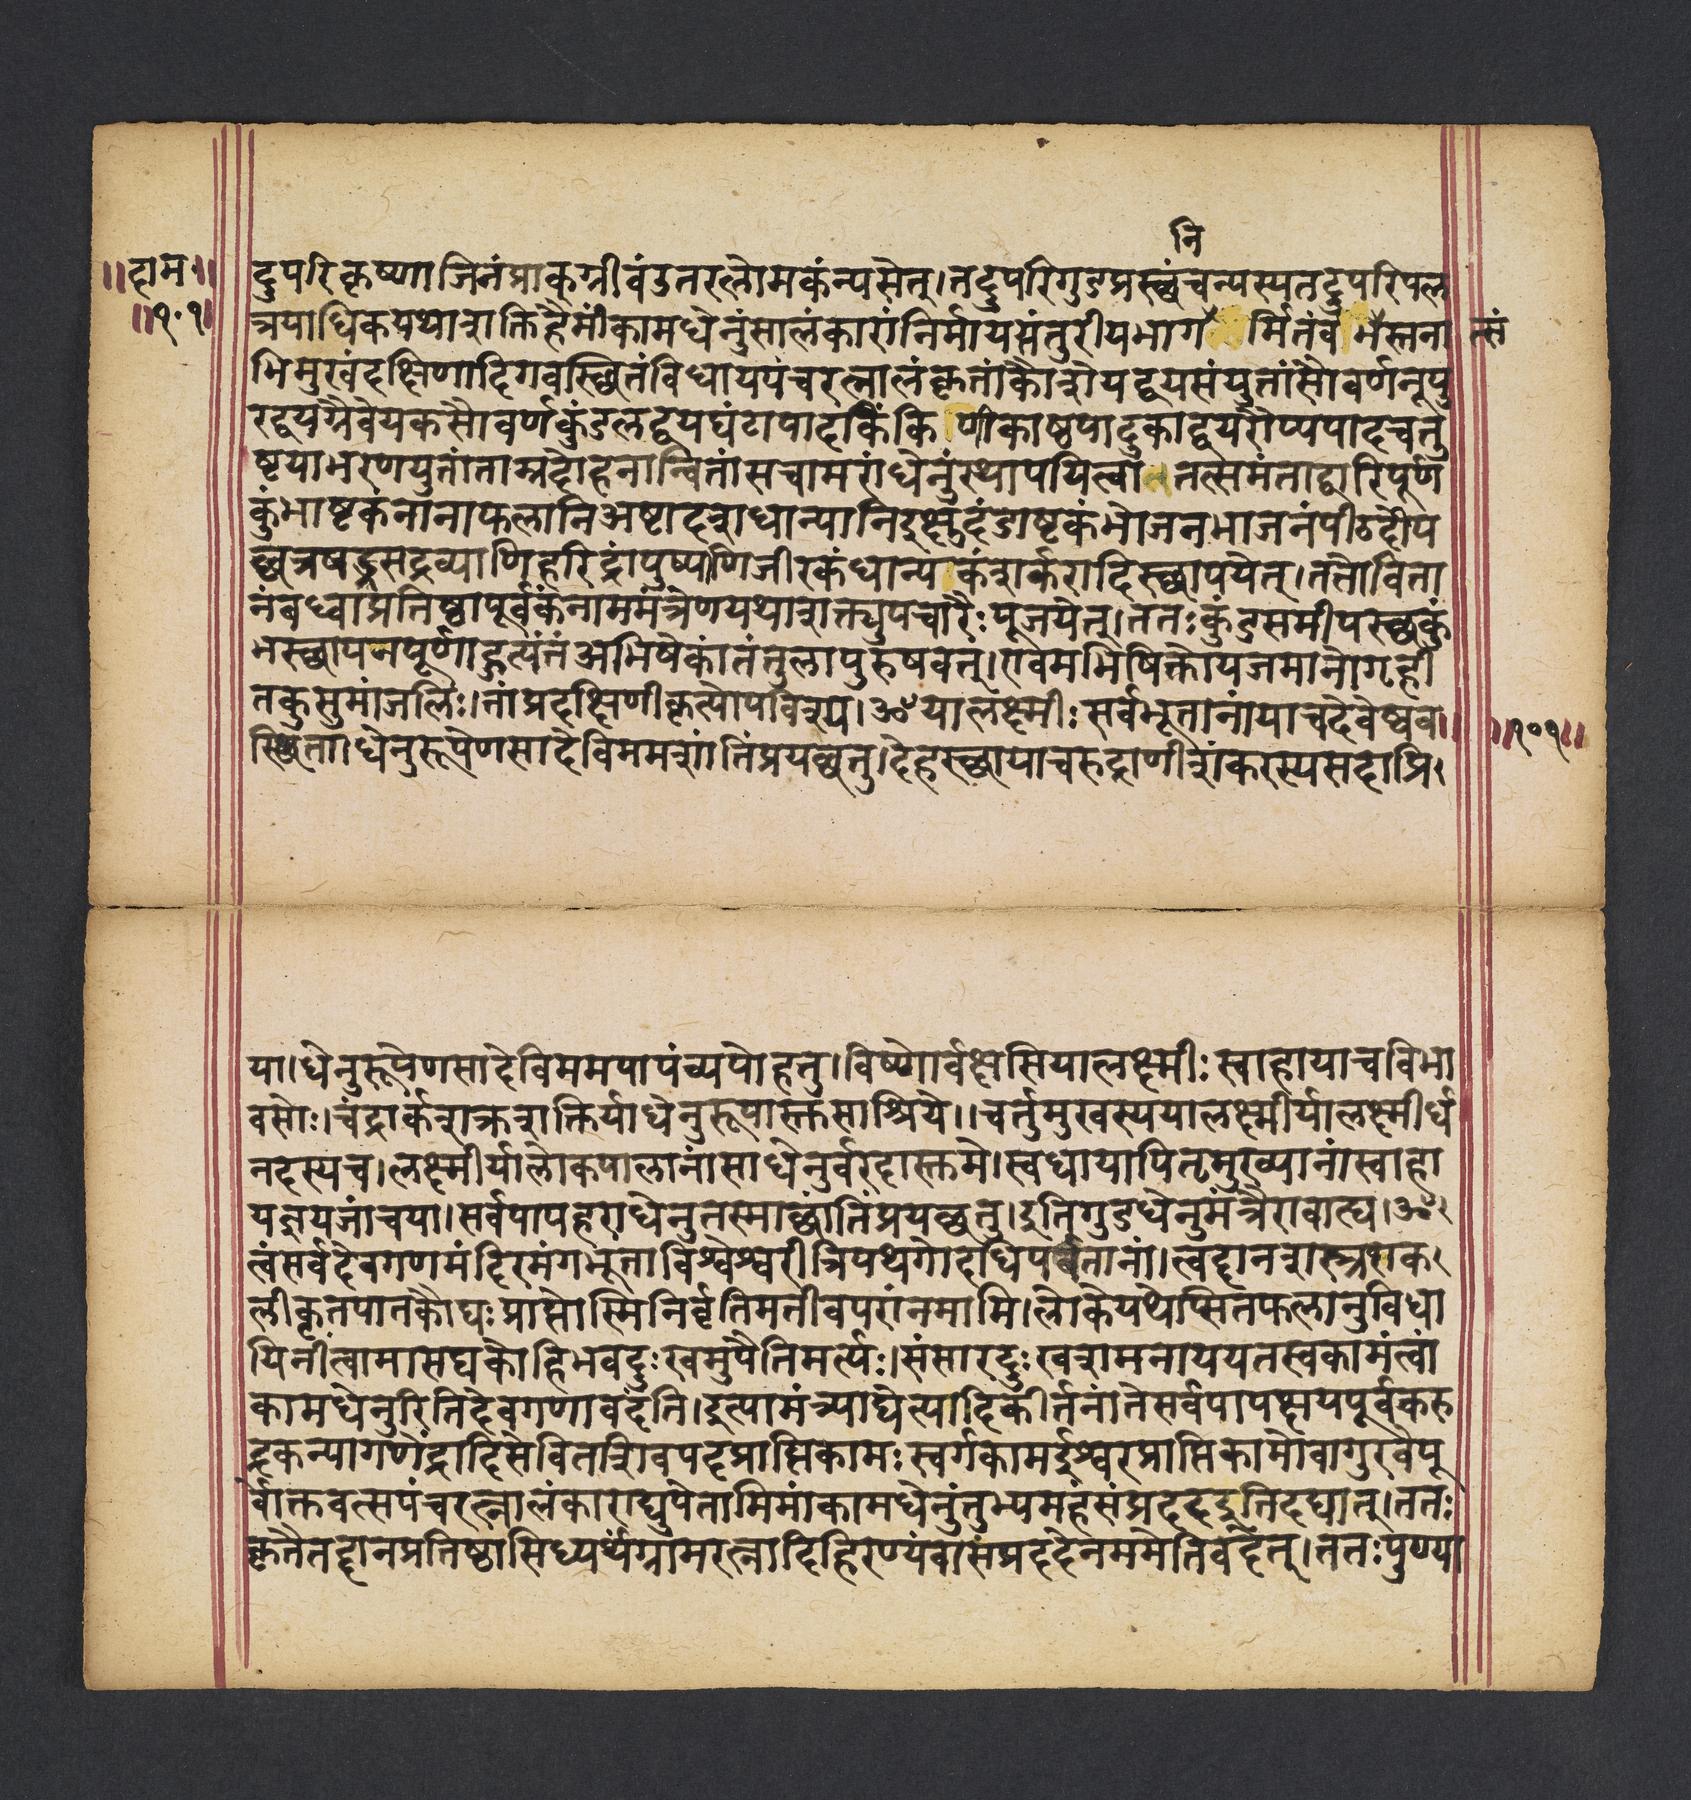 नि
॥दाम॥
॥१०१॥
दुपरिकृष्णाजिनंप्राक्ग्रीवंउतरलोमकंन्यसेत्।तदुपरिगुडप्रस्छंचन्यस्यतदुपरिपल
त्रयाधिकययथाशक्तिहैमींकामधेनुंसालंकारांनिर्माय र्मितंव स्तना त्सं
भिमुखंदक्षिणादिगवस्छितंविधायपंचरत्नालंकृतांकौशेयद्वयसंयुतांसौवर्णनूपु
रद्वयग्रैवेयकसौवर्णकुंडलद्वयघंटापादकिंकि णीकाष्ठपादुकाद्वयरौप्यपादचतु
ष्टयाभरणयुतांताम्रदोहनान्वितांसचामरांधेनुंस्थापयित्वा तत्समंताद्वारिपूर्ण
कुंभाष्टकंनानाफलानिअष्टादशधान्यानिइक्षुदंडाष्टकंभोजनभाजनंपीठदीप
छत्रषड्रसद्रव्याणिहरिद्रांपुष्पाणिजीरकंधान्य कंशर्करादिस्छापयेत्।ततोविता
नंबध्वाप्रतिष्ठापूर्वकंनाममंत्रेणयथाशक्त्युपचारैःपूजयेत्।ततःकुंडसमीपस्छकुं
भस्छापनपूर्णाहुत्यंतंअभिषेकांतंतुलापुरुषवत्।एवमभिषिक्तोयजमानोगृही
तकुसुमांजलिः।तांप्रदक्षिणीकृत्योपविश्य।ॐयालंक्ष्मीःसर्वभूतानांयाचदेवेष्वव
स्छिता।धेनुरूपेणसादेविममशांतिंप्रयच्छतु।देहस्छायाचरुद्राणीशंकरस्यसदाप्रि
॥१०१॥
या।धेनुरूपेणसादेविममपापंव्यपोहतु।विष्णोर्वक्षसियालक्ष्मीःस्वाहायाचविभा
वसोः।चंद्रार्कशक्रशक्तिर्याधेनुरूपास्तुसाश्रिये॥चर्तुमुखस्ययालक्ष्मीर्यालक्ष्मीर्ध
नदस्यच।लक्ष्मीर्यालोकपालानांसाधेनुर्वरदास्तुमे।स्वधायापितृमुख्यानांस्वाहा
यज्ञयजांचया।सर्वपापहराधेनुतस्माच्छांतिंप्रयच्छतु।इतिगुडधेनुमंत्रैरावाह्य।ॐ
त्वंसर्वदेवगणमंदिरमंगभूताविश्वेश्वरीत्रिपथगोदधिपर्वतानां।त्वद्दानशस्त्रशक
लीकृतपातकौघःप्राप्तोस्मिनिर्वृतिमतीवपरांनमामि।लोकेयथेप्सितफलानुविधा
यिनींत्वामासद्यकोहिभवदुःखमुपैतिमर्त्यः।संसारदुःखशमनाययतस्वकामंत्वां
कामधेनुरितिदेवगणावदंति।इत्यामंत्र्याद्येत्यादिकीर्तनांतेसर्वपापक्षयपूर्वकरु
द्रकन्यागणेंद्रादिसेवितशिवपदप्राप्तिकामःस्वर्गकामईश्वरप्राप्तिकामोवागुरवेपू
र्वोक्तवत्सपंचरत्नालंकाराद्युपेतामिमांकामधेनुंतुभ्यमहंसंप्रददइतिदद्यात्।ततः
कृतैतद्दानप्रतिष्ठासिध्यर्थंग्रामरत्नादिहिरण्यंवासंप्रददेनममेतिवदेत्।ततःपुण्या